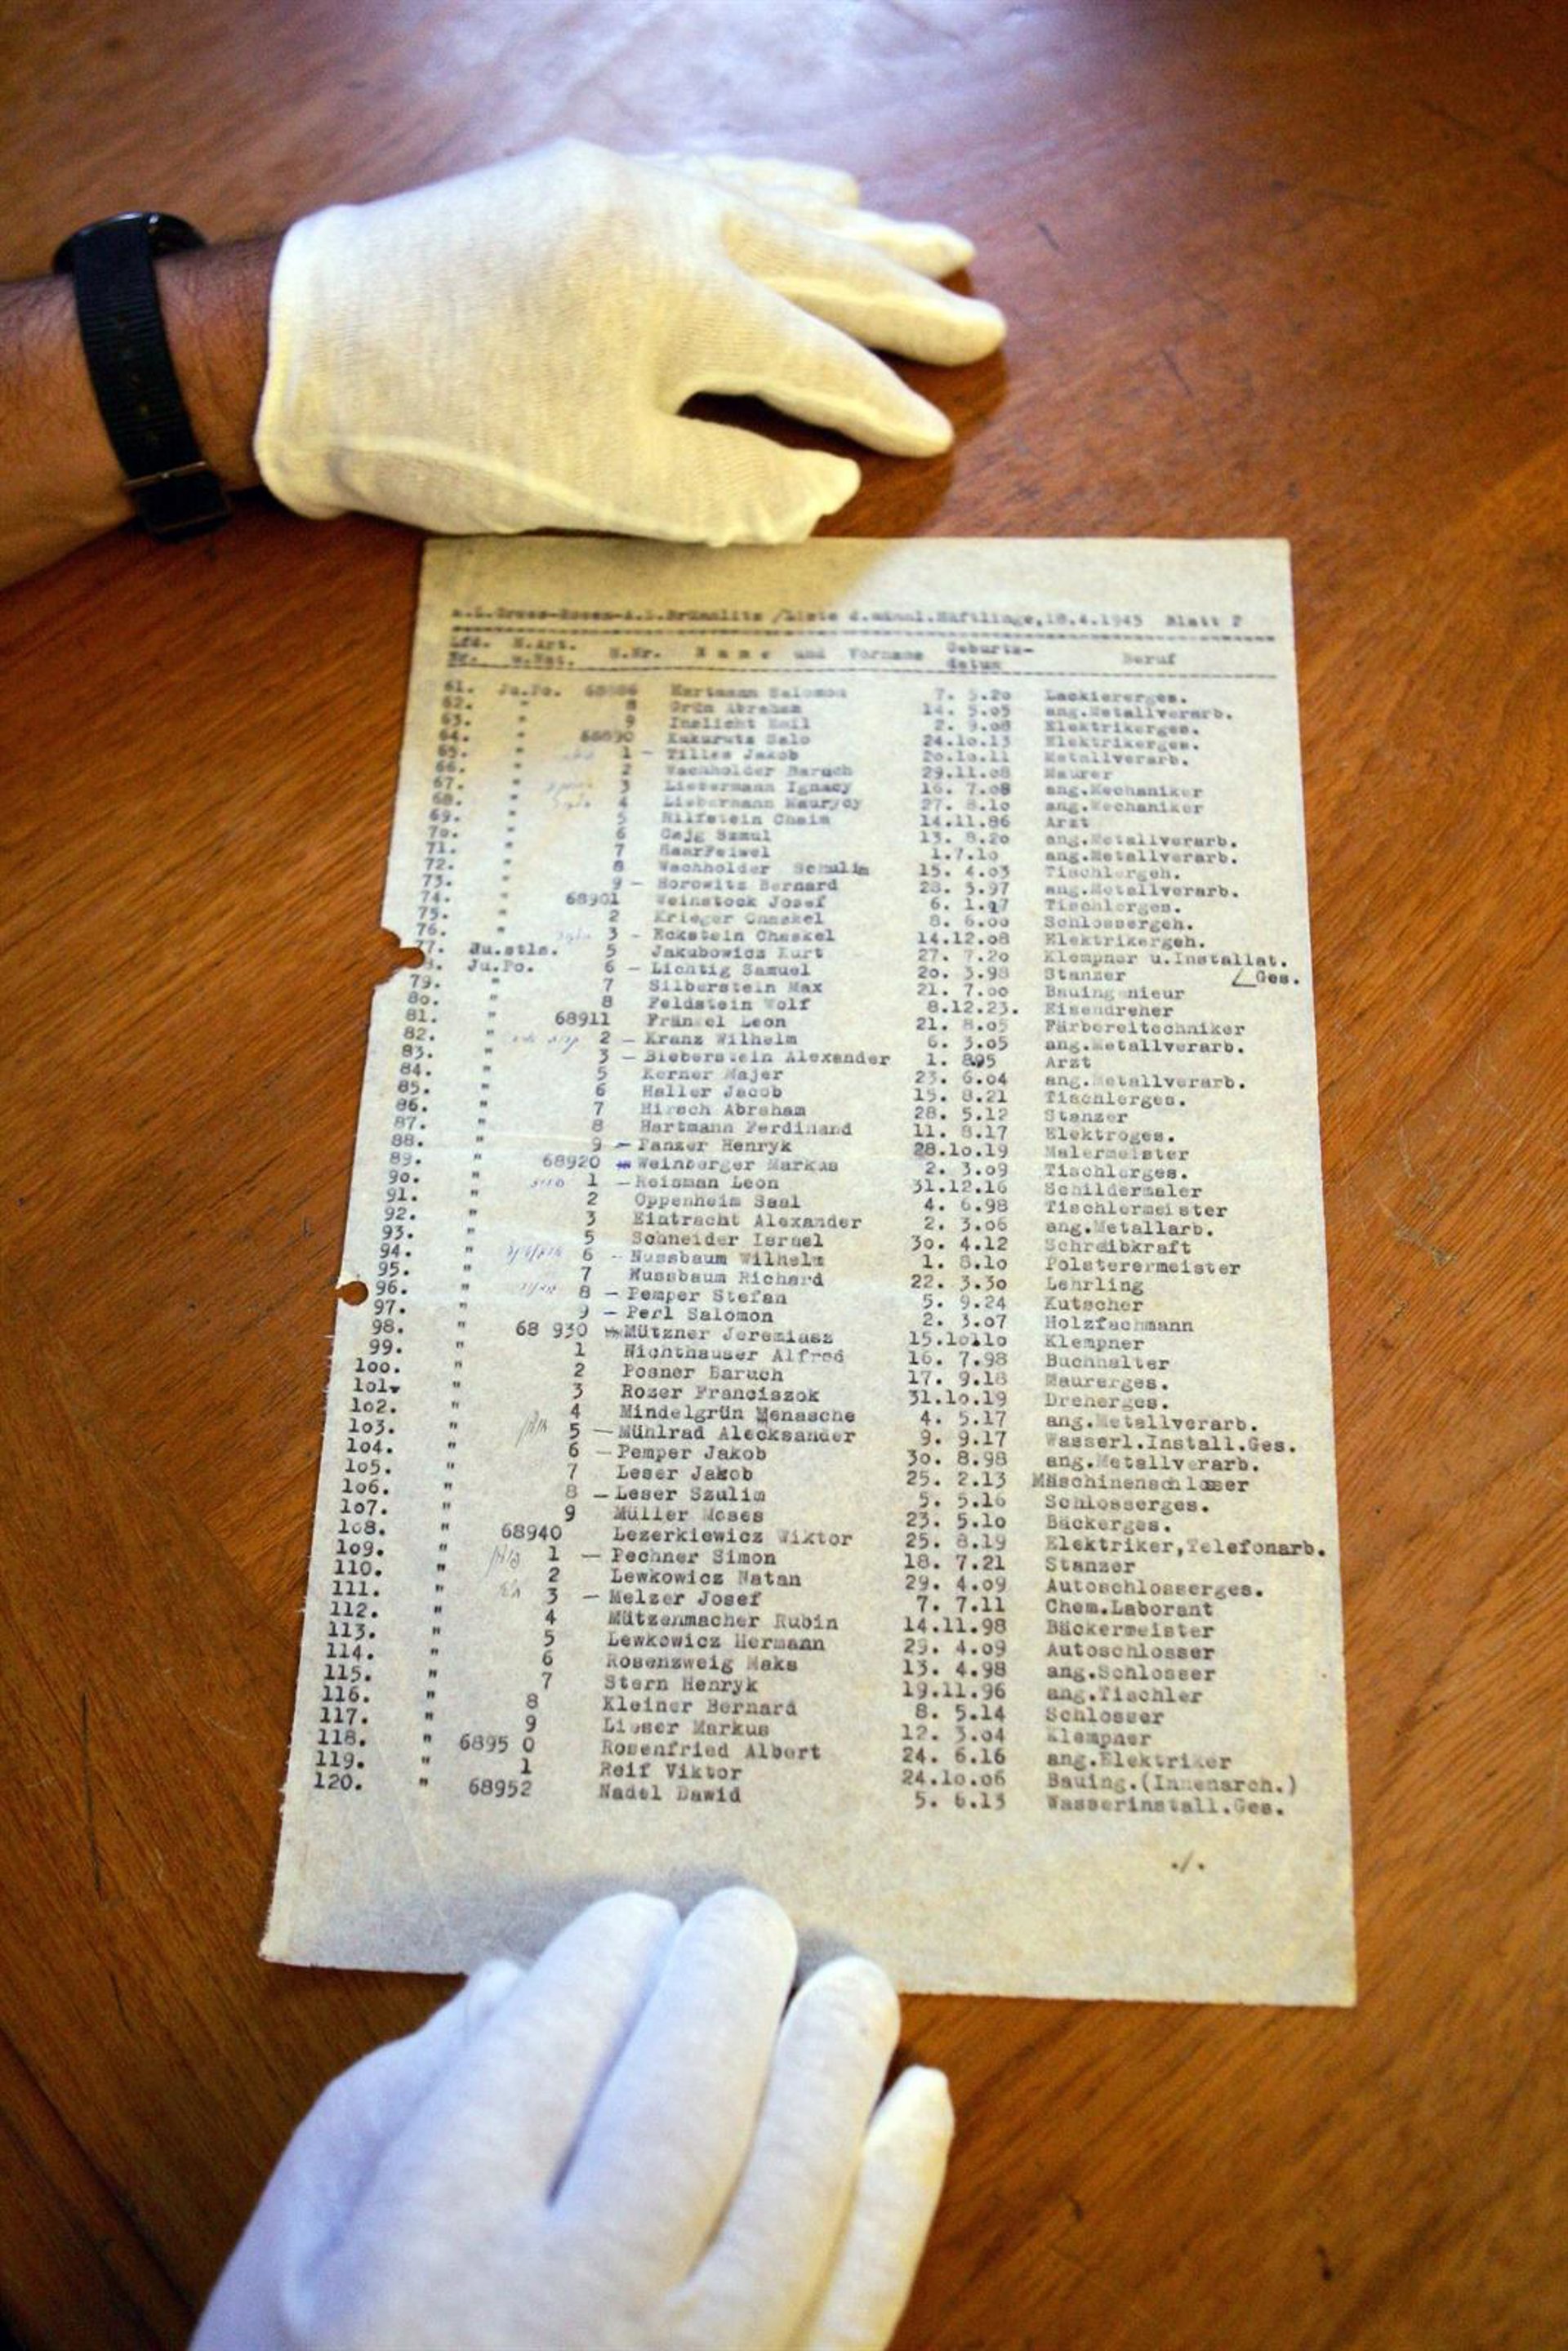 K.L.Gross-Rosen-A.L.Brünnlitz /Liste d.männl.Häftlinge,18.4.1945 Blatt 2
Lfd. H.Art. H.Nr. N a m e und Vorname Geburts- Beruf
Nr. u.Nat. datum
61. Ju.Po. 68886 Hartmann Salomon 7. 5.20 Lackiererges.
62. " 8 Grün Abraham 14. 5.05 ang.Metallverarb.
63. " 9 Inslicht Emil 2. 9.08 Elektrikerges.
64. " 68890 Kukurutz Salo 24.10.13 Elektrikerges.
65. " 1 - Tilles Jakob 20.10.11 Metallverarb.
66. " 2 Wachholder Baruch 29.11.08 Maurer
67. " 3 Liebermann Ignacy 16. 7.08 ang.Mechaniker
68. " 4 Liebermann Maurycy 27. 8.10 ang.Mechaniker
69. " 5 Hilfstein Chaim 14.11.86 Arzt
70. " 6 Szmul 13. 8.20 ang.Metallverarb.
71. " 7 Haar Feiwel 1.7.10 ang.Metallverarb.
72. " 8 Wachholder Schulim 15. 4.03 Tischlergeh.
73. " 9 - Horowitz Bernard 28. 3.97 ang.Metallverarb.
74. " 68901 Weinstock Josef 6. 1.17 Tischlerges.
75. " 2 Krieger Chaskel 8. 6.00 Schlossergeh.
76. " 3 - Eckstein Cheskel 14.12.08 Elektrikergeh.
77. Ju.stls. 5 Jakubowicz Kurt 27. 7.20 Klempner u.Installat.
Ju.Po. 6 - Lichtig Samuel 20. 3.98 Stanzer Ges.
79. " 7 Silberstein Max 21. 7.00 Bauing nieur
80. " 8 Feldstein Wolf 8.12.23. Eisendreher
81. " 68911 Fränkel Leon 21. 8.05 Färbereitechniker
82. " 2 - Kranz Wilhelm 6. 3.05 ang.Metallverarb.
83. " 3 - Bieberstein Alexander 1. 895 Arzt
84. " 5 Kerner Majer 23. 6.04 ang.Metallverarb.
85. " 6 Haller Jacob 15. 8.21 Tischlerges.
86. " 7 Hirsch Abraham 28. 5.12 Stanzer
87. " 8 Hartmann Ferdinand 11. 8.17 Elektroges.
88. " 9 - Panzer Henryk 28.10.19 Malermeister
89. " 68920 Weinberger Markus 2. 3.09 Tischlerges.
90. " 1 - Reisman Leon 31.12.16 Schildermaler
91. " 2 Oppenheim Saal 4. 6.98 Tischlermeister
92. " 3 Eintracht Alexander 2. 3.06 ang.Metallarb.
93. " 5 Schneider Israel 30. 4.12 Schreibkraft
94. " 6 - Nussbaum Wilhelm 1. 8.10 Polsterermeister
95. " 7 Nussbaum Richard 22. 3.30 Lehrling
96. " 8 - Pemper Stefan 5. 9.24 Kutscher
97. " 9 - Perl Salomon 2. 3.07 Holzfachmann
98. " 68 930 Mützner Jeremiasz 15.10110 Klempner
99. " 1 Nichthauser Alfred 16. 7.98 Buchhalter
100. " 2 Posner Baruch 17. 9.18 Maurerges.
101. " 3 Rozer Franciszok 31.10.19 Dreherges.
102. " 4 Mindelgrün Menasche 4. 5.17 ang.Metallverarb.
103. " 5 - Mühlrad Alecksander 9. 9.17 Wasserl.Install.Ges.
104. " 6 - Pemper Jakob 30. 8.98 ang.Metallverarb.
105. " 7 Leser Jakob 25. 2.13 Maschinenschlosser
106. " 8 - Leser Szulim 5. 5.16 Schlosserges.
107. " 9 Müller Moses 23. 5.10 Bäckerges.
108. " 68940 Lezerkiewicz Wiktor 25. 8.19 Elektriker,Telefonarb.
109. " 1 - Pechner Simon 18. 7.21 Stanzer
110. " 2 Lewkowicz Natan 29. 4.09 Autoschlosserges.
111. " 3 - Melzer Josef 7. 7.11 Chem.Laborant
112. " 4 Mützenmacher Rubin 14.11.98 Bäckermeister
113. " 5 Lewkowicz Hermann 29. 4.09 Autoschlosser
114. " 6 Rosenzweig Maks 13. 4.98 ang.Schlosser
115. " 7 Stern Henryk 19.11.96 ang.Tischler
116. " 8 Kleiner Bernard 8. 5.14 Schlosser
117. " 9 Lieser Markus 12. 3.04 Klempner
118. " 6895 0 Rosenfried Albert 24. 6.16 ang.Elektriker
119. " 1 Reif Viktor 24.10.06 Bauing.(Innenarch.)
120. " 68952 Nadel Dawid 5. 6.13 Wasserinstall.Ges.
./.